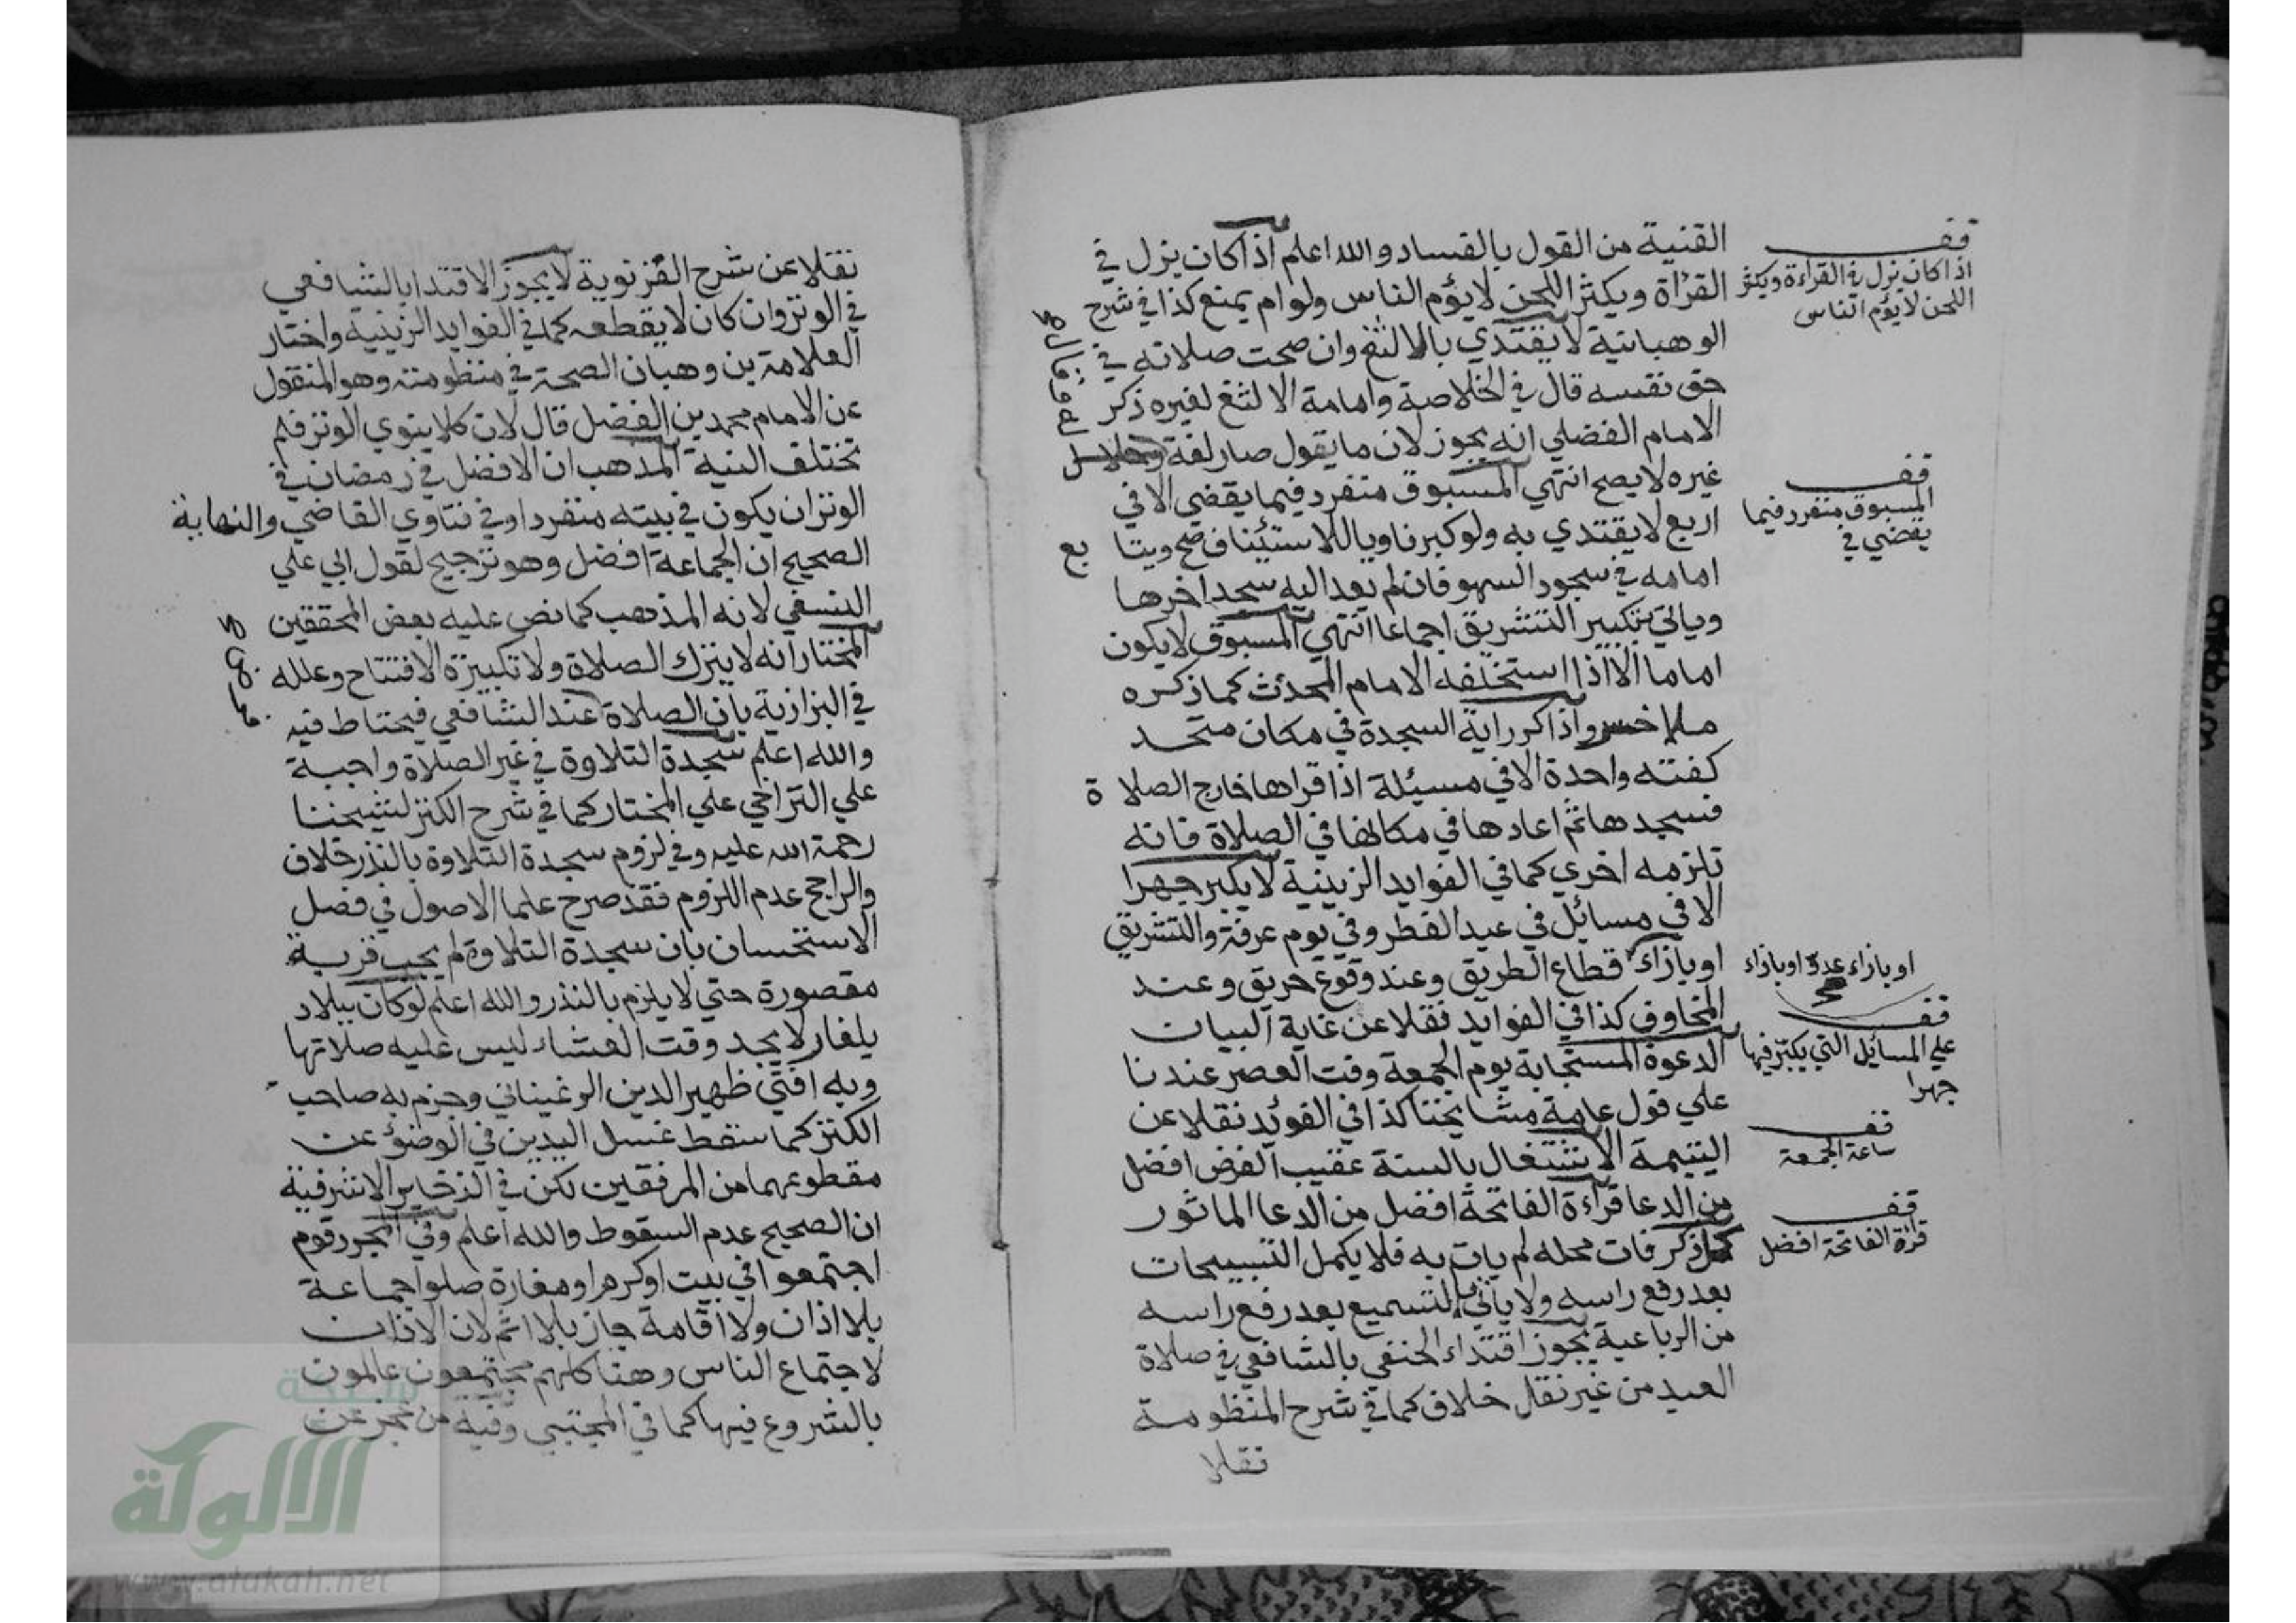 القنية من القول بالفساد والله اعلم اذا كان ينزل في
القراة ويكثر اللحن لا يؤم الناس ولو ام يمنع كذا في شرح
الوهبانية لا يقتدي بالالثغ وان صحت صلاته في
حق نفسه قال في الخلاصة وامامة الالثغ لغيره ذكر
الامام الفضلي انه يجوز لان ما يقول صار لغة
غيره لا يصح انتهي المسبوق منفرد فيما يقضي الا في
اربع لا يقتدي به ولو كبر ناويا للاستئناف صح ويتابع
امامه في سجود السهو فان لم يعد اليه سجد اخرها
وياتي بتكبير التشريق اجماعا انتهي المسبوق لا يكون
اماما الا اذا استخلفه الامام المحدث كما ذكره
ملا خسرو اذا كرر اية السجدة في مكان متحد
كفته واحدة الا في مسئلة اذا قراها خارج الصلاة
فسجدها ثم اعادها في مكانها في الصلاة فانه
تلزمه اخري كما في الفوايد الزينية لا يكبر جهرا
الا في مسائل في عيد الفطر وفي يوم عرفة والتشريق
او بازاء قطاع الطريق وعند وقوع حريق وعند
المخاوف كذا في الفوايد نقلا عن غاية البيان
الدعوة المستجابة يوم الجمعة وقت العصر عندنا
علي قول عامة مشايخنا كذا في الفوئد نقلا عن
اليتيمة الاشتغال بالسنة عقيب الفرض افضل
من الدعا قراءة الفاتحة افضل من الدعا الماثور
كل ذكر فات محله لم يات به فلا يكمل التسبيحات
بعد رفع راسه ولا ياتي بالتسميع بعد رفع راسه
من الرباعية يجوز اقتداء الحنفي بالشافعي في صلاة
العيد من غير نقل خلاف كما في شرح المنظومة
نقلا
قف
اذا كان ينزل في القراءة ويكثر
اللحن لا يؤم الناس
قف
المسبوق منفرد فيما
يقضي في
او بازاء عدو او بازاء
صح
قف
علي المسائل التي يكبر فيها
جهرا
قف
ساعة الجمعة
قف
قراة الفاتحة افضل
نقلا عن شرح الغزنوية لا يجوز الاقتدا بالشافعي
في الوتر وان كان لا يقطعه كما في الفوايد الزينية واختار
العلامة بن وهبان الصحة في منظومته وهو المنقول
عن الامام محمد بن الفضل قال لان كلا ينوي الوتر فلم
تختلف النية المذهب ان الافضل في رمضان في
الوتر ان يكون في بيته منفردا وفي فتاوي القاضي والنهاية
الصحيح ان الجماعة افضل وهو ترجيح لقول ابي علي
النسفي لانه المذهب كما نص عليه بعض المحققين
المختار انه لا يترك الصلاة ولا تكبيرة الافتتاح وعلله
في البزازية بان الصلاة عند الشافعي فيحتاط فيه
والله اعلم سجدة التلاوة في غير الصلاة واجبة
علي التراخي علي المختار كما في شرح الكنز لشيخنا
رحمة الله عليه وفي لزوم سجدة التلاوة بالنذر خلاف
والراجح عدم اللزوم فقد صرح علما الاصول في فصل
الاستحسان بان سجدة التلاوة لم يجب قربة
مقصورة حتي لا يلزم بالنذر والله اعلم لو كان ببلاد
بلغار لا يجد وقت العشاء ليس عليه صلاتها
وبه افتي ظهير الدين الرغيناني وجزم به صاحب
الكنز كما سقط غسل اليدين في الوضؤ عن
مقطوعهما من المرفقين لكن في الذخاير الاشرفية
ان الصحيح عدم السقوط والله اعلم وفي البحر قوم
اجتمعوا في بيت او كرم او مغارة صلوا جماعة
بلا اذان ولا اقامة جاز بلا اثم لان الاذان
لاجتماع الناس وهنا كلهم مجتمعون عالمون
بالشروع فيها كما في المجتبي وفيه من عجز عن
شبكة
الألوكة
www.alukah.net